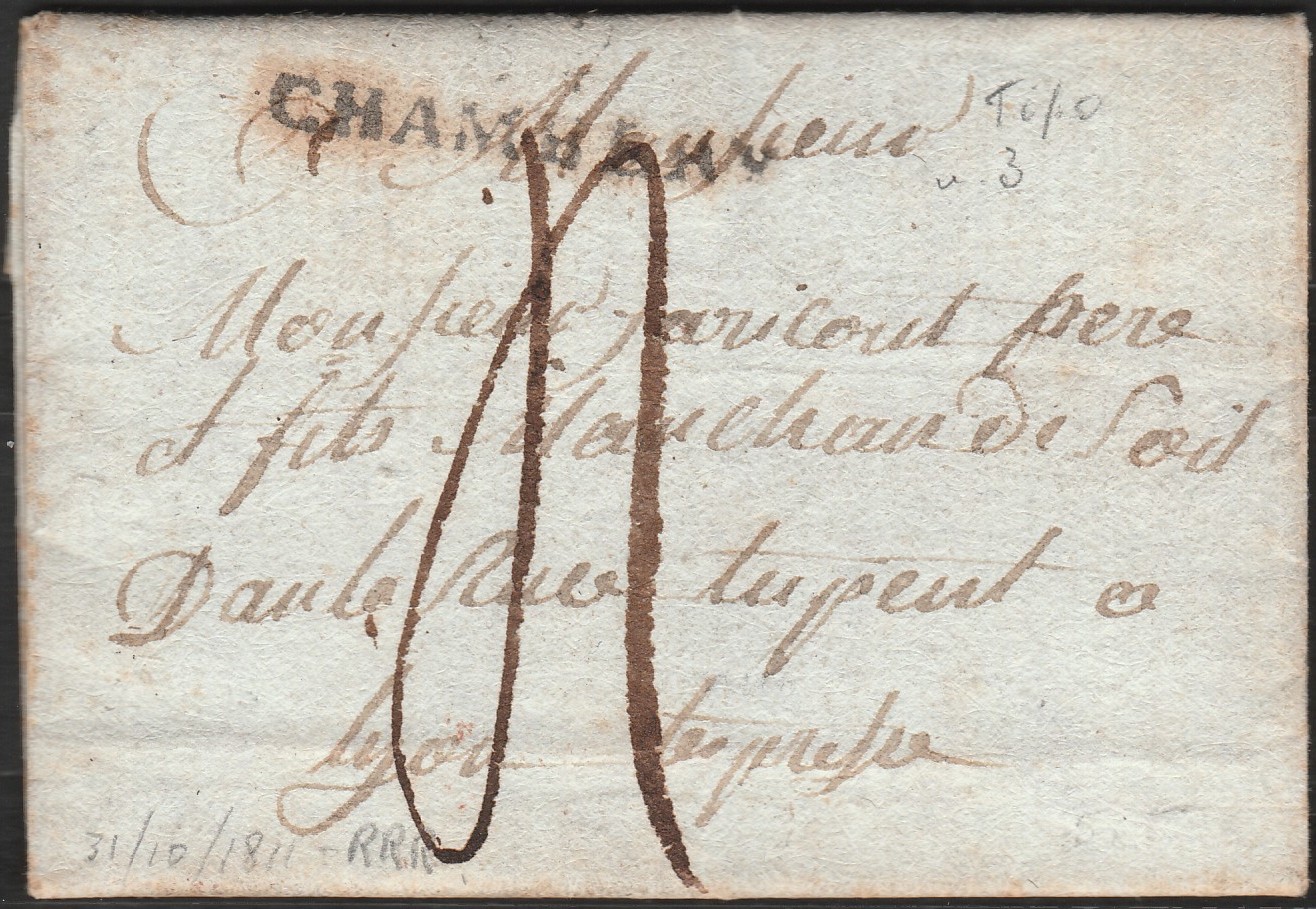 CHAMBERY
Monsieur
Tipo
n. 3
Monsieur faricout pere
et fils Marchan De Soit
Dans la Rue tupent a
lyon
31/10/1811 - RRR